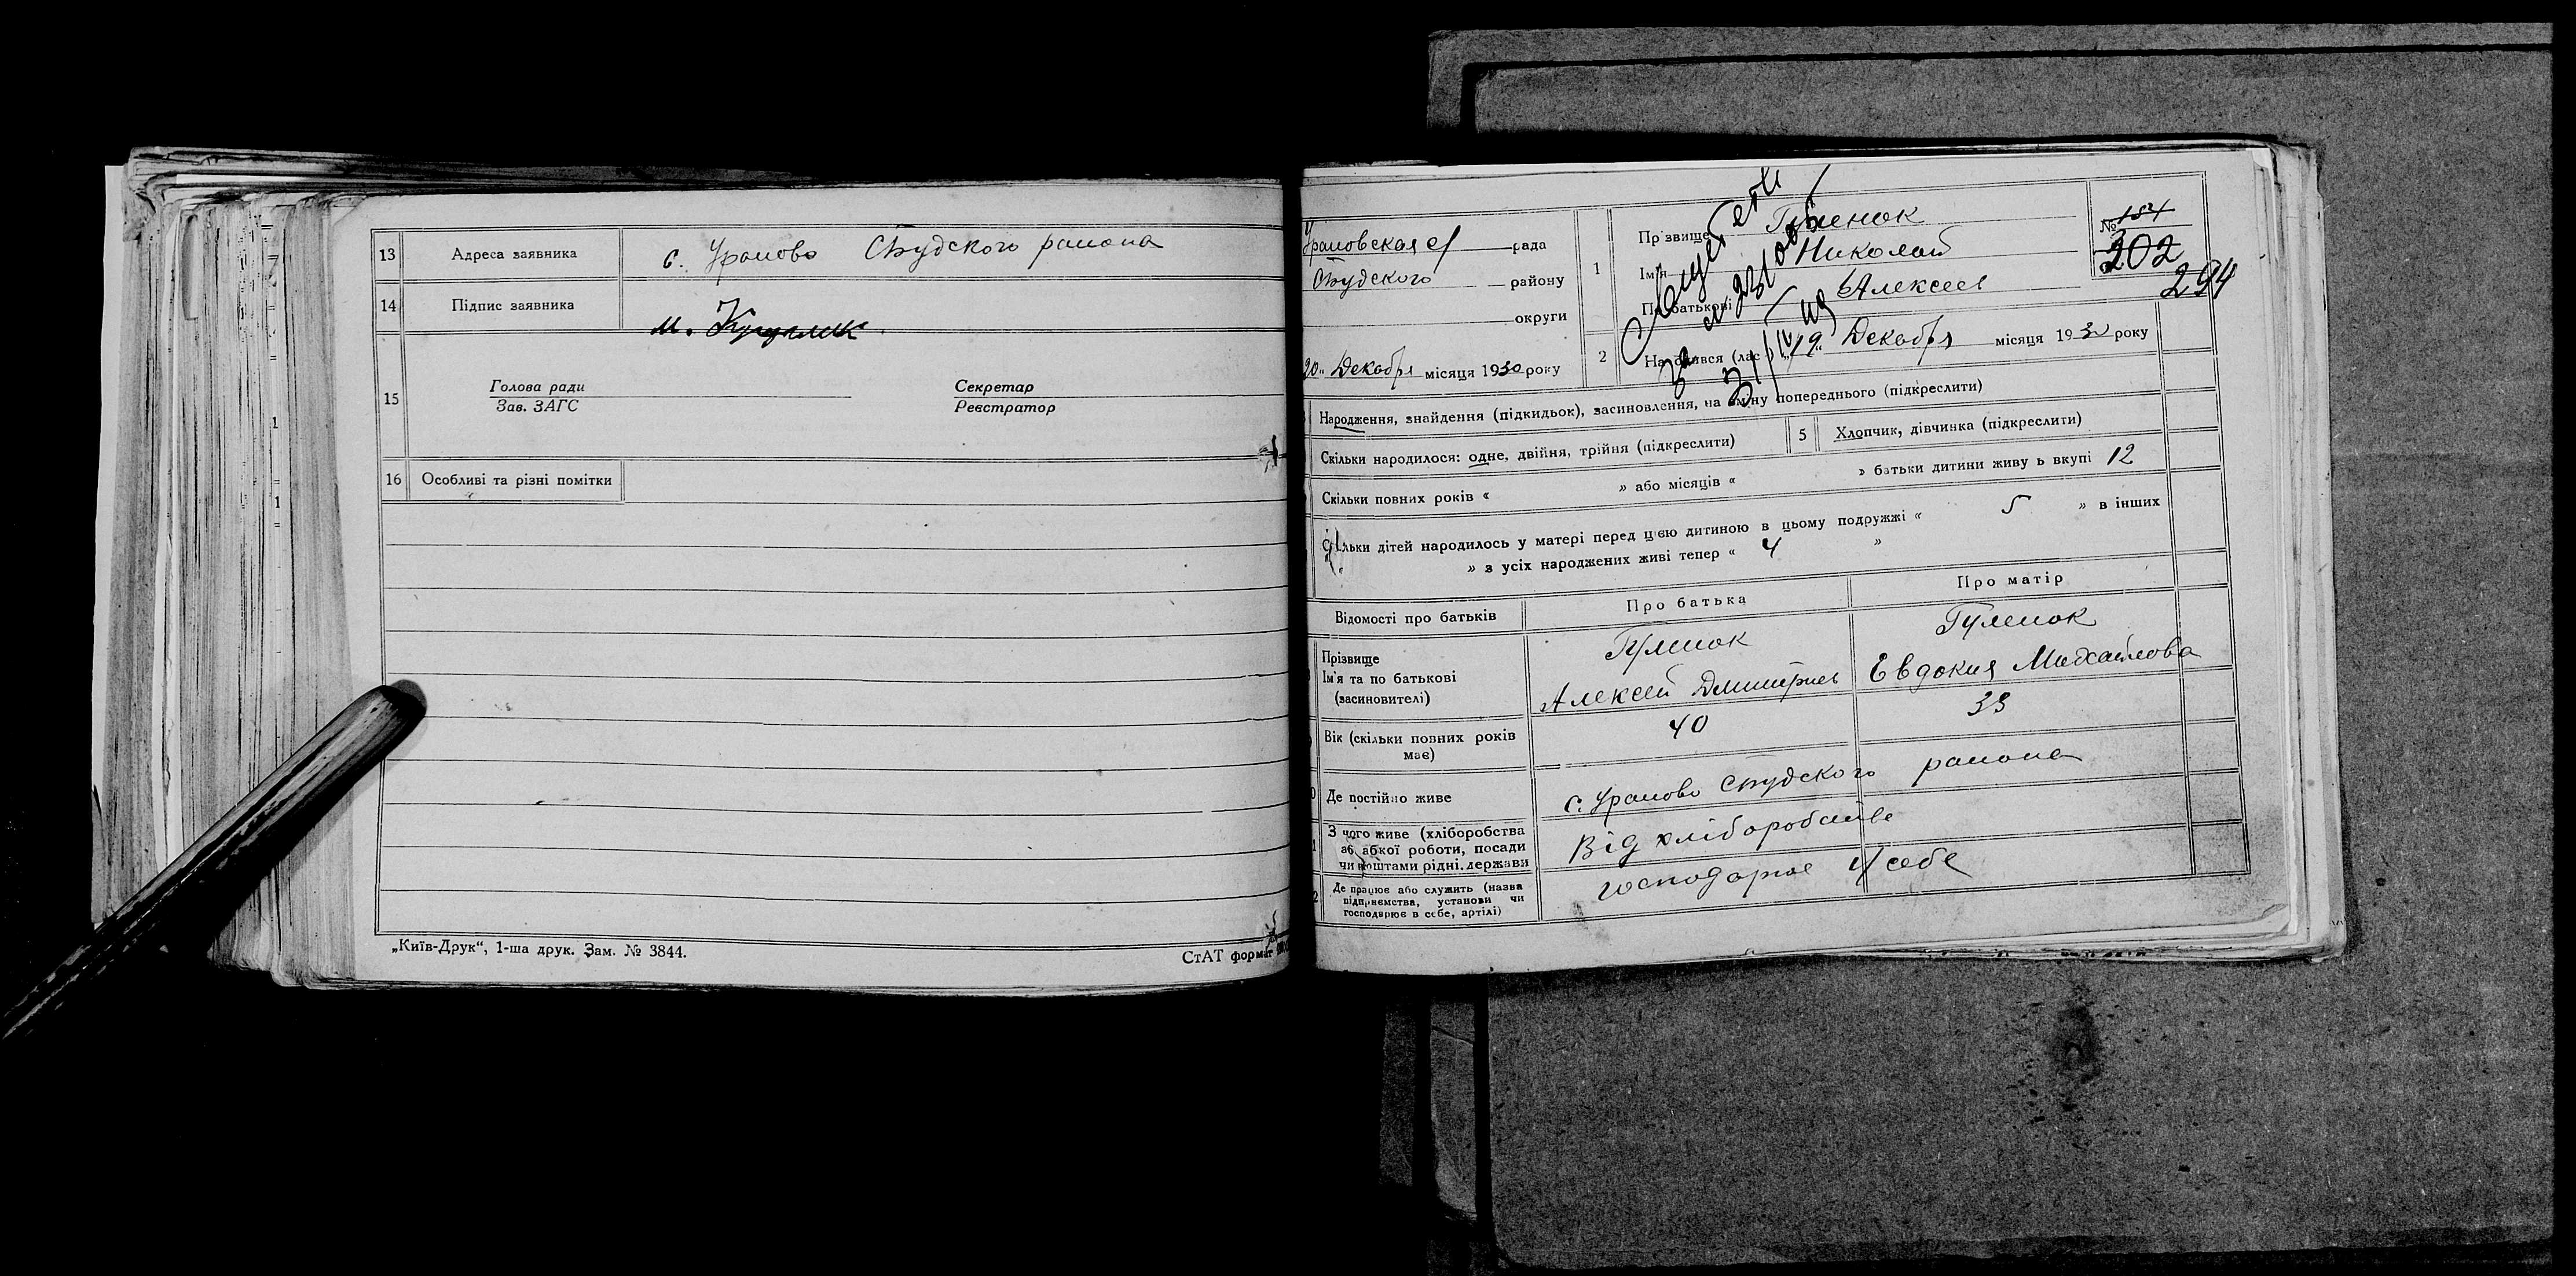 13 Адреса заявника с. Уралово Сбудского района
14 Підпис заявника
м.
15 Голова ради Секретар
Зав. ЗАГС Реєстратор
16 Особливі та різні помітки
„Київ-Друк“, 1-ша друк. Зам. № 3844.
СтАТ формат
Ураловская рада
Сбудского району
округи
20 „ Декабря місяця 1930 року
1 Прізвище Гуленок
Ім'я Николай
По батькові Алексеев
№ 184
202
294
2 Народився (лась) „19“ Декабря місяця 1930 року
Свидетель
Народження, знайдення (підкидьок), засиновлення, на зміну попереднього (підкреслити)
Скільки народилося: одне, двійня, трійня (підкреслити) 5 Хлопчик, дівчинка (підкреслити)
Скільки повних років « » або місяців « » батьки дитини живуть вкупі 12
Скільки дітей народилось у матері перед цією дитиною в цьому подружжі « 5 » в інших
« » з усіх народжених живі тепер « 4 »
Відомості про батьків Про батька Про матір
Прізвище Гуленок Гуленок
Ім'я та по батькові Алексей Дмитриев Евдокия Михайлова
(засновителі)
Вік (скільки повних років має) 40 33
Де постійно живе с. Уралово Сбудского района
З чого живе (хліборобства
аб абкої роботи, посади
чи коштами рідні, держави Від хліборобства
Де працює або служить (назва
підприємства, установи чи
господарює в себе, артілі) господарює у себе